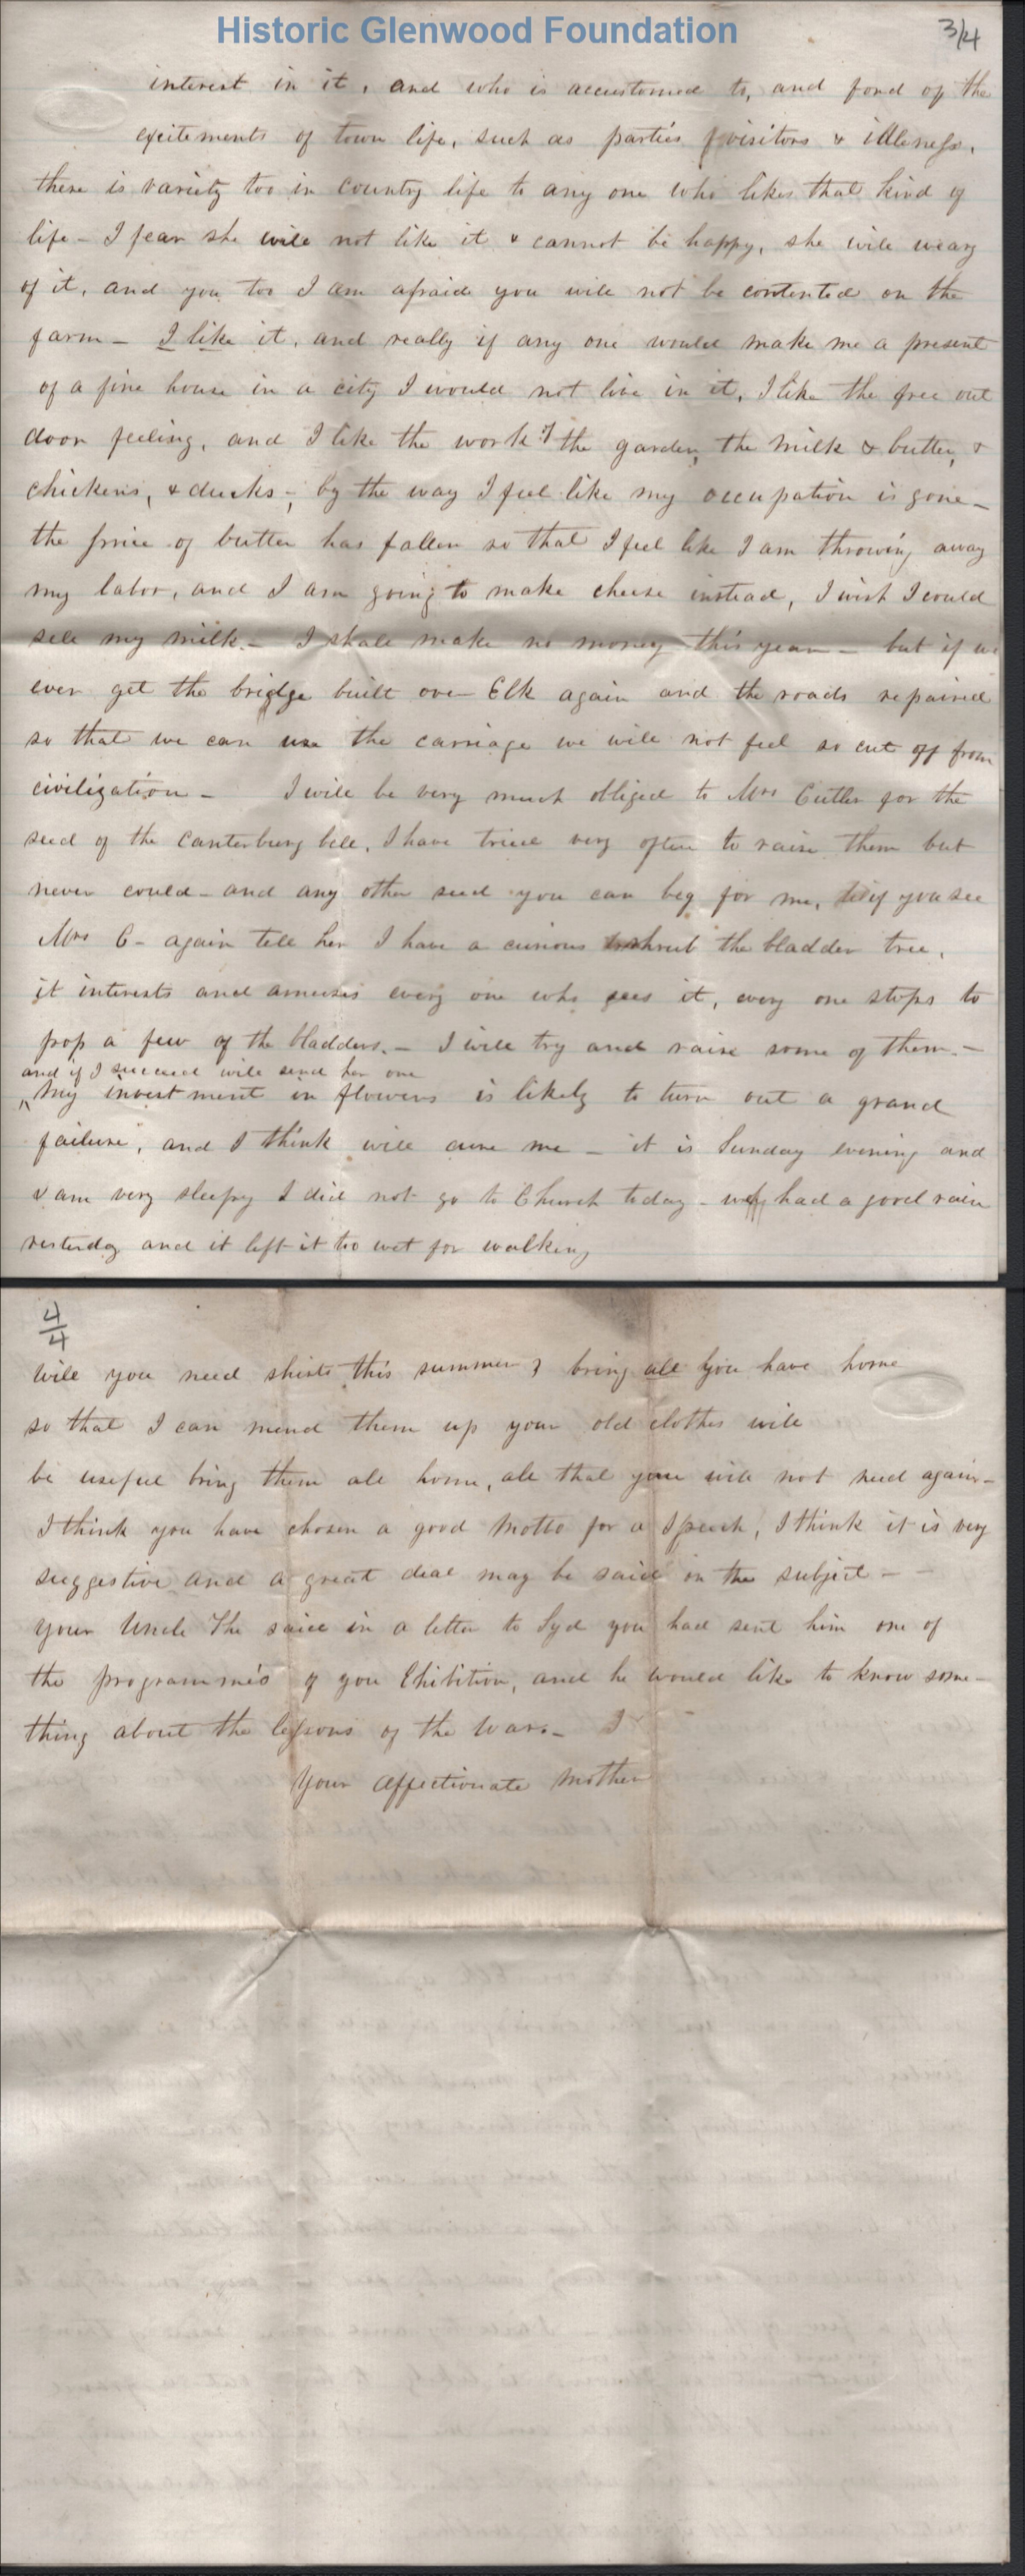 Historic Glenwood Foundation
3/4
interest in it, and who is accustomed to, and fond of the
excitements of town life, such as parties visitors & idleness,
there is variety too in country life to any one who likes that kind of
life - I fear she will not like it & cannot be happy, she will weary
of it, and you too I am afraid you will not be contented on the
farm - I like it, and really if any one would make me a present
of a fine house in a city I would not live in it, I like the free out
door feeling, and I like the work of the garden, the milk & butter, &
chickens, & ducks -, by the way I feel like my occupation is gone -
the price of butter has fallen so that I feel like I am throwing away
my labor, and I am going to make cheese instead, I wish I could
sell my milk. - I shall make no money this year - but if we
ever get the bridge built over Elk again and the roads repaired
so that we can use the carriage we will not feel so cut off from
civilization - I will be very much obliged to Mrs Cutler for the
seed of the Canterbury bell, I have tried very often to raise them but
never could - and any other seed you can beg for me, if you see
Mrs C - again tell her I have a curious shrub the bladder tree,
it interests and amuses every one who sees it, every one stops to
pop a few of the bladders. - I will try and raise some of them. -
and if I succeed will send her one
My investment in flowers is likely to turn out a grand
failure, and I think will cure me - it is Sunday evening and
I am very sleepy I did not go to Church today - we had a good rain
yesterday and it left it too wet for walking
4/4
Will you need shirts this summer? bring all you have home
so that I can mend them up your old clothes will
be useful bring them all home, all that you will not need again -
I think you have chosen a good Motto for a Speech, I think it is very
suggestive and a great deal may be said on the subject -
your Uncle The said in a letter to Syd you had sent him one of
the programme's of you Ehibition, and he would like to know some-
thing about the lessons of the War. - I
Your affectionate Mother